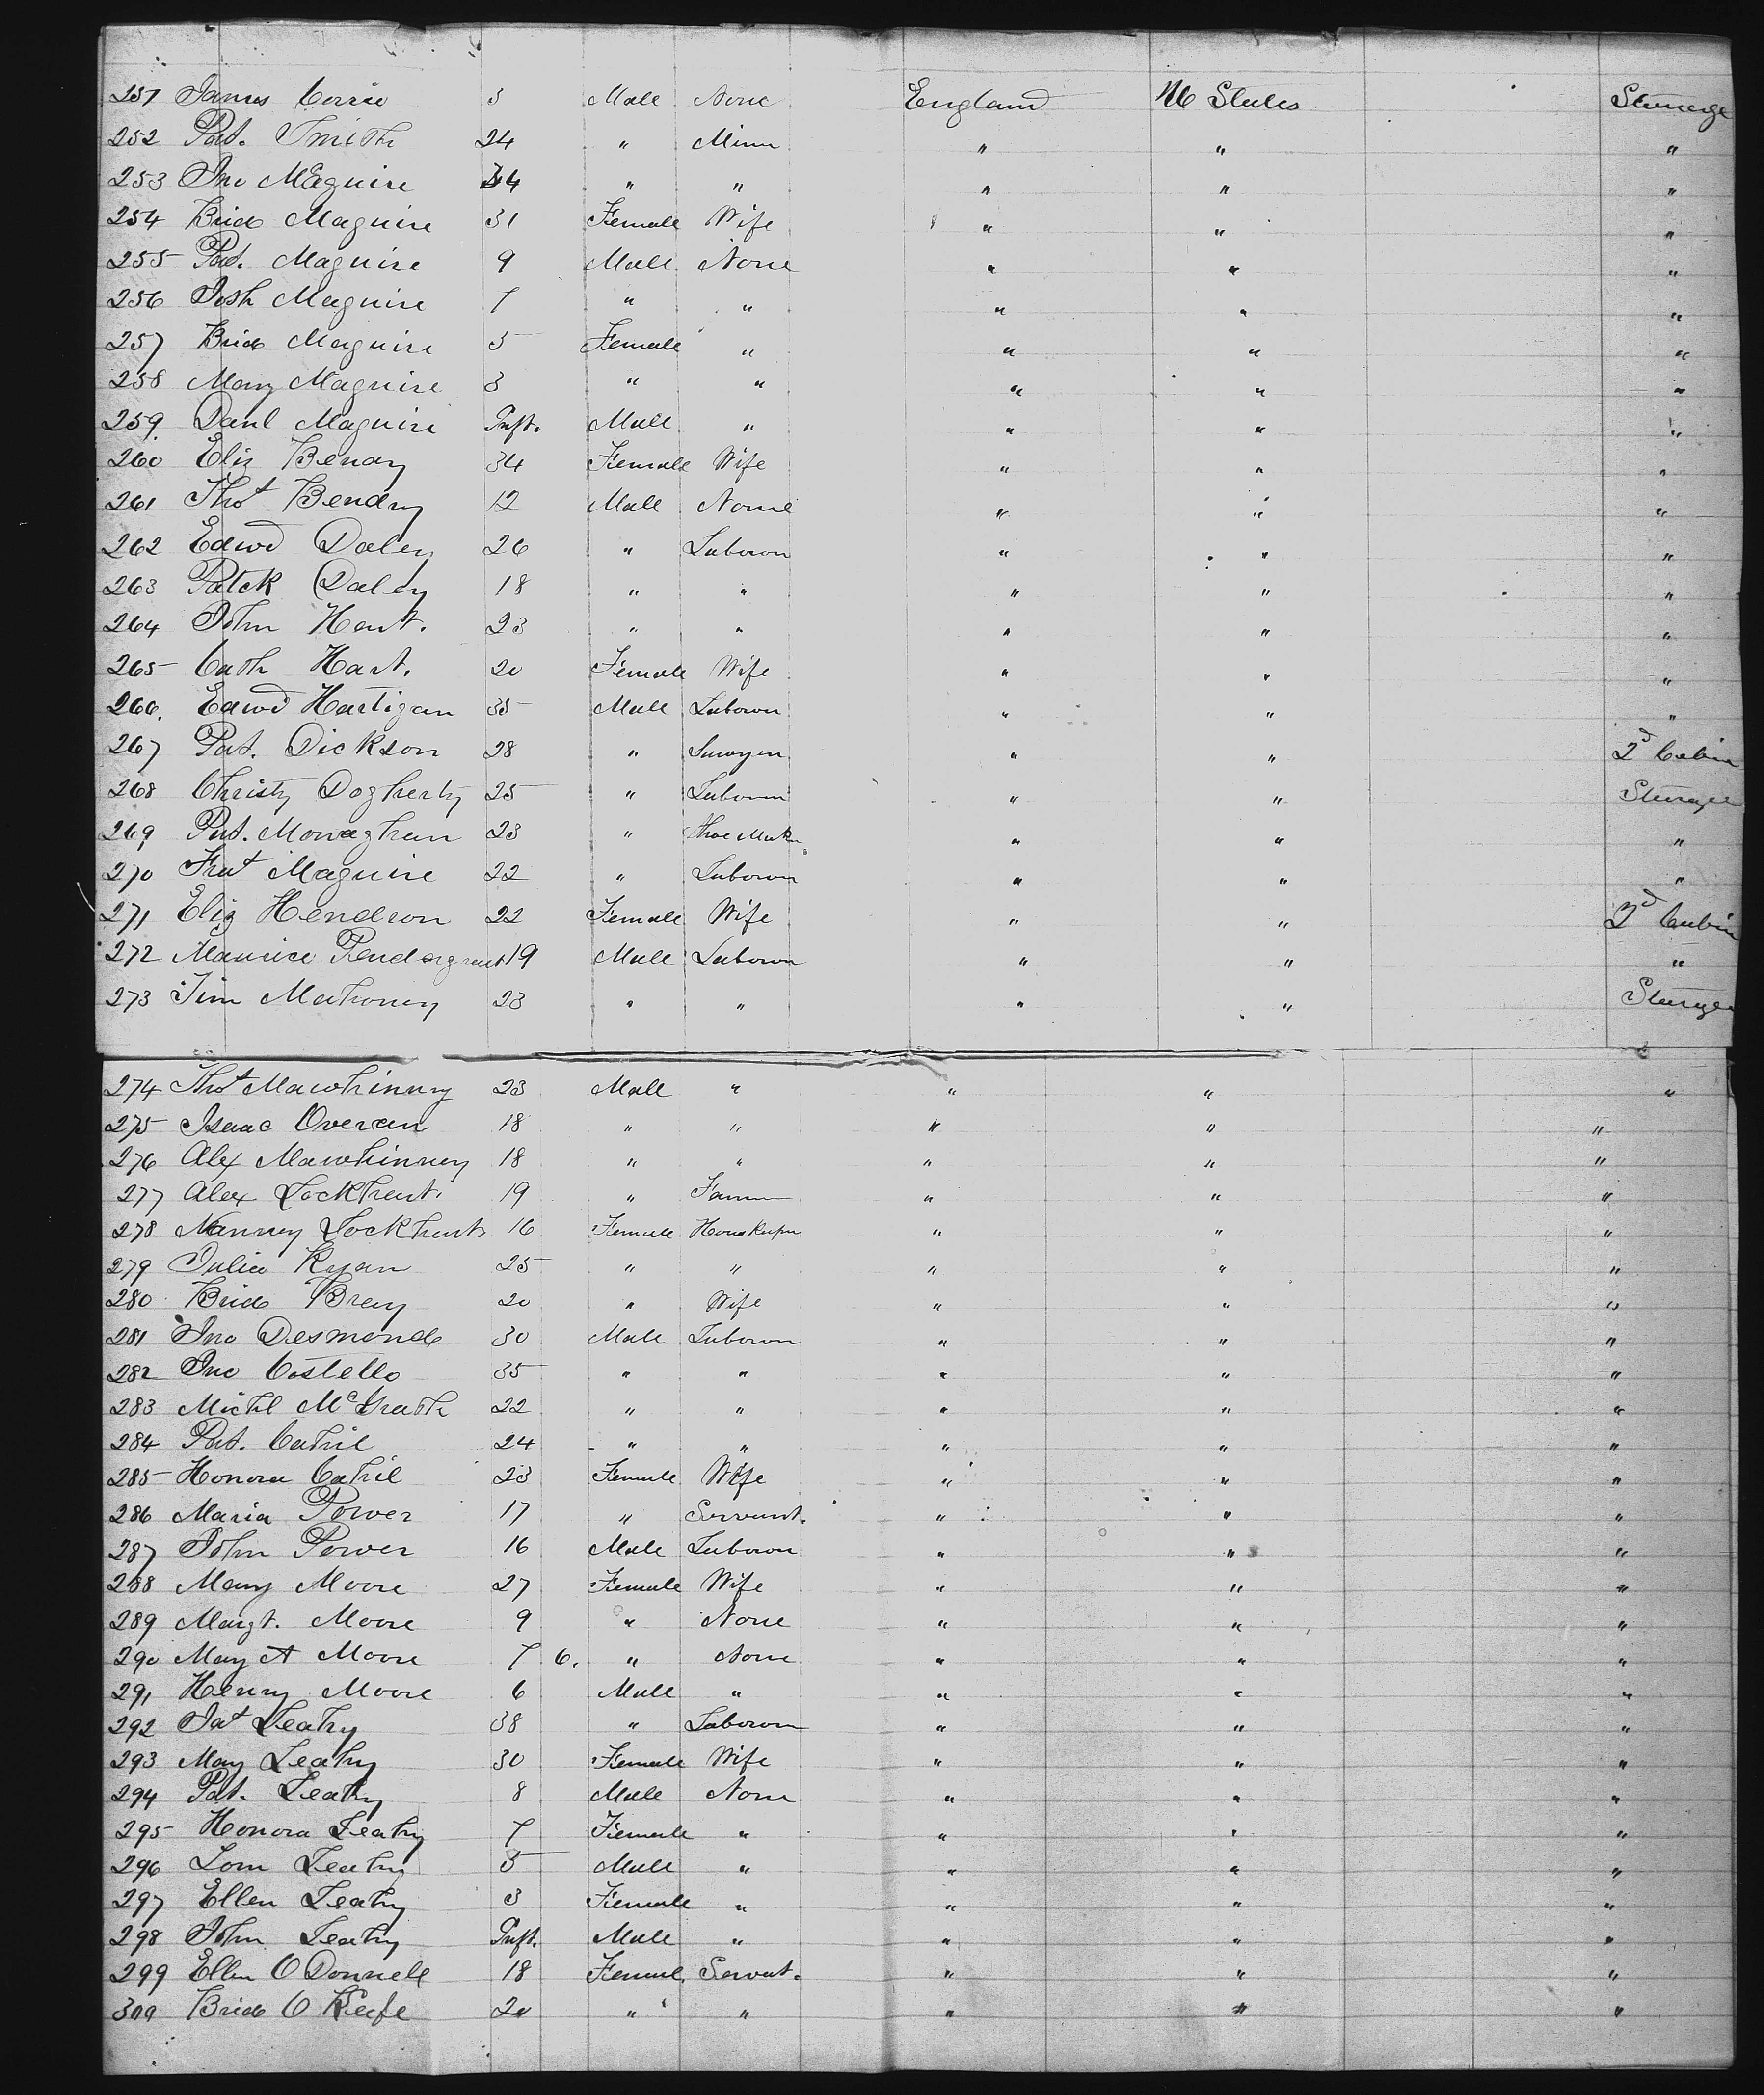 251 James Corrie 3 Male None England U States Steerage
252 Pat. Smith 24 " Miner " " "
253 Jno Maguire 34 " " " " "
254 Brid Maguire 31 Female Wife " " "
255 Pat. Maguire 9 Male None " " "
256 Josh Maguire 7 " " " " "
257 Brid Maguire 5 Female " " " "
258 Mary Maguire 3 " " " " "
259 Danl Maguire Inft. Male " " " "
260 Eliz Bendry 34 Female Wife " " "
261 Thos Bendry 12 Male None " " "
262 Edwd Daley 26 " Labourer " " "
263 Patck Daley 18 " " " " "
264 John Hart. 23 " " " " "
265 Cath Hart. 20 Female Wife " " "
266. Edwd Hartigan 35 Male Labourer " " "
267 Pat. Dickson 28 " " " 2d Cabin
268 Christy Dogherty 25 " Labourer " " Steerage
269 Pat. Monaghan 23 " Shoe Maker " " "
270 Fras Maguire 22 " Labourer " " "
271 Eliz Hendron 22 Female Wife " " 2d Cabin
272 Maurice Pendergrast 19 Male Labourer " " "
273 Tim Mahoney 23 " " " " Steerage
274 Thos Mawhinney 23 Male " " " "
275 Isaac Overan 18 " " " " "
276 Alex Mawhinney 18 " " " " "
277 Alex Lockhart. 19 " Farmer " " "
278 Nanney Lockhart 16 Female Housekeeper " " "
279 Julia Ryan 25 " " " " "
280 Brid Bray 20 " Wife " " "
281 Jno Desmond 30 Male Labourer " " "
282 Jno Costello 35 " " " " "
283 Michl McGrath 22 " " " " "
284 Pat. Cahil 24 " " " " "
285 Honora Cahil 23 Female Wife " " "
286 Maria Power 17 " Servant. " " "
287 John Power 16 Male Labourer " " "
288 Mary Moore 27 Female Wife " " "
289 Margt. Moore 9 " None " " "
290 Mary A Moore 7 6. " None " " "
291 Henry Moore 6 Male " " " "
292 Jas Leahy 38 " Labourer " " "
293 Mary Leahy 30 Female Wife " " "
294 Pat. Leahy 8 Male None " " "
295 Honora Leahy 7 Female " " " "
296 Tom Leahy 5 Male " " " "
297 Ellen Leahy 3 Female " " " "
298 John Leahy Inft. Male " " " "
299 Ellen O Donnell 18 Female Servant. " " "
300 Brid O Keefe 20 " " " " "